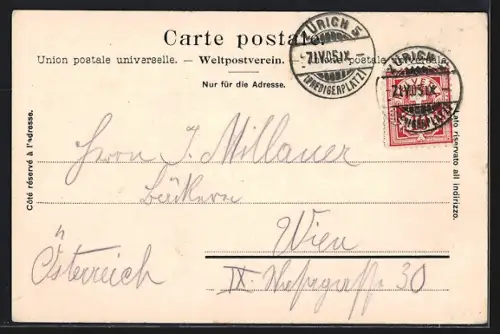 Carte postale.
Union postale universelle. — Weltpostverein. — Unione postale universale
Nur für die Adresse.
ZÜRICH 5
7.IV.05.IX
(PREDIGERPLATZ)
ZÜRICH 5
7.IV.05.IX
Côté réservé à l'adresse.
Lato riservato all indirizzo.
Herrn J. Millauer
Bäckerei
Wien
Österreich
IX. 30